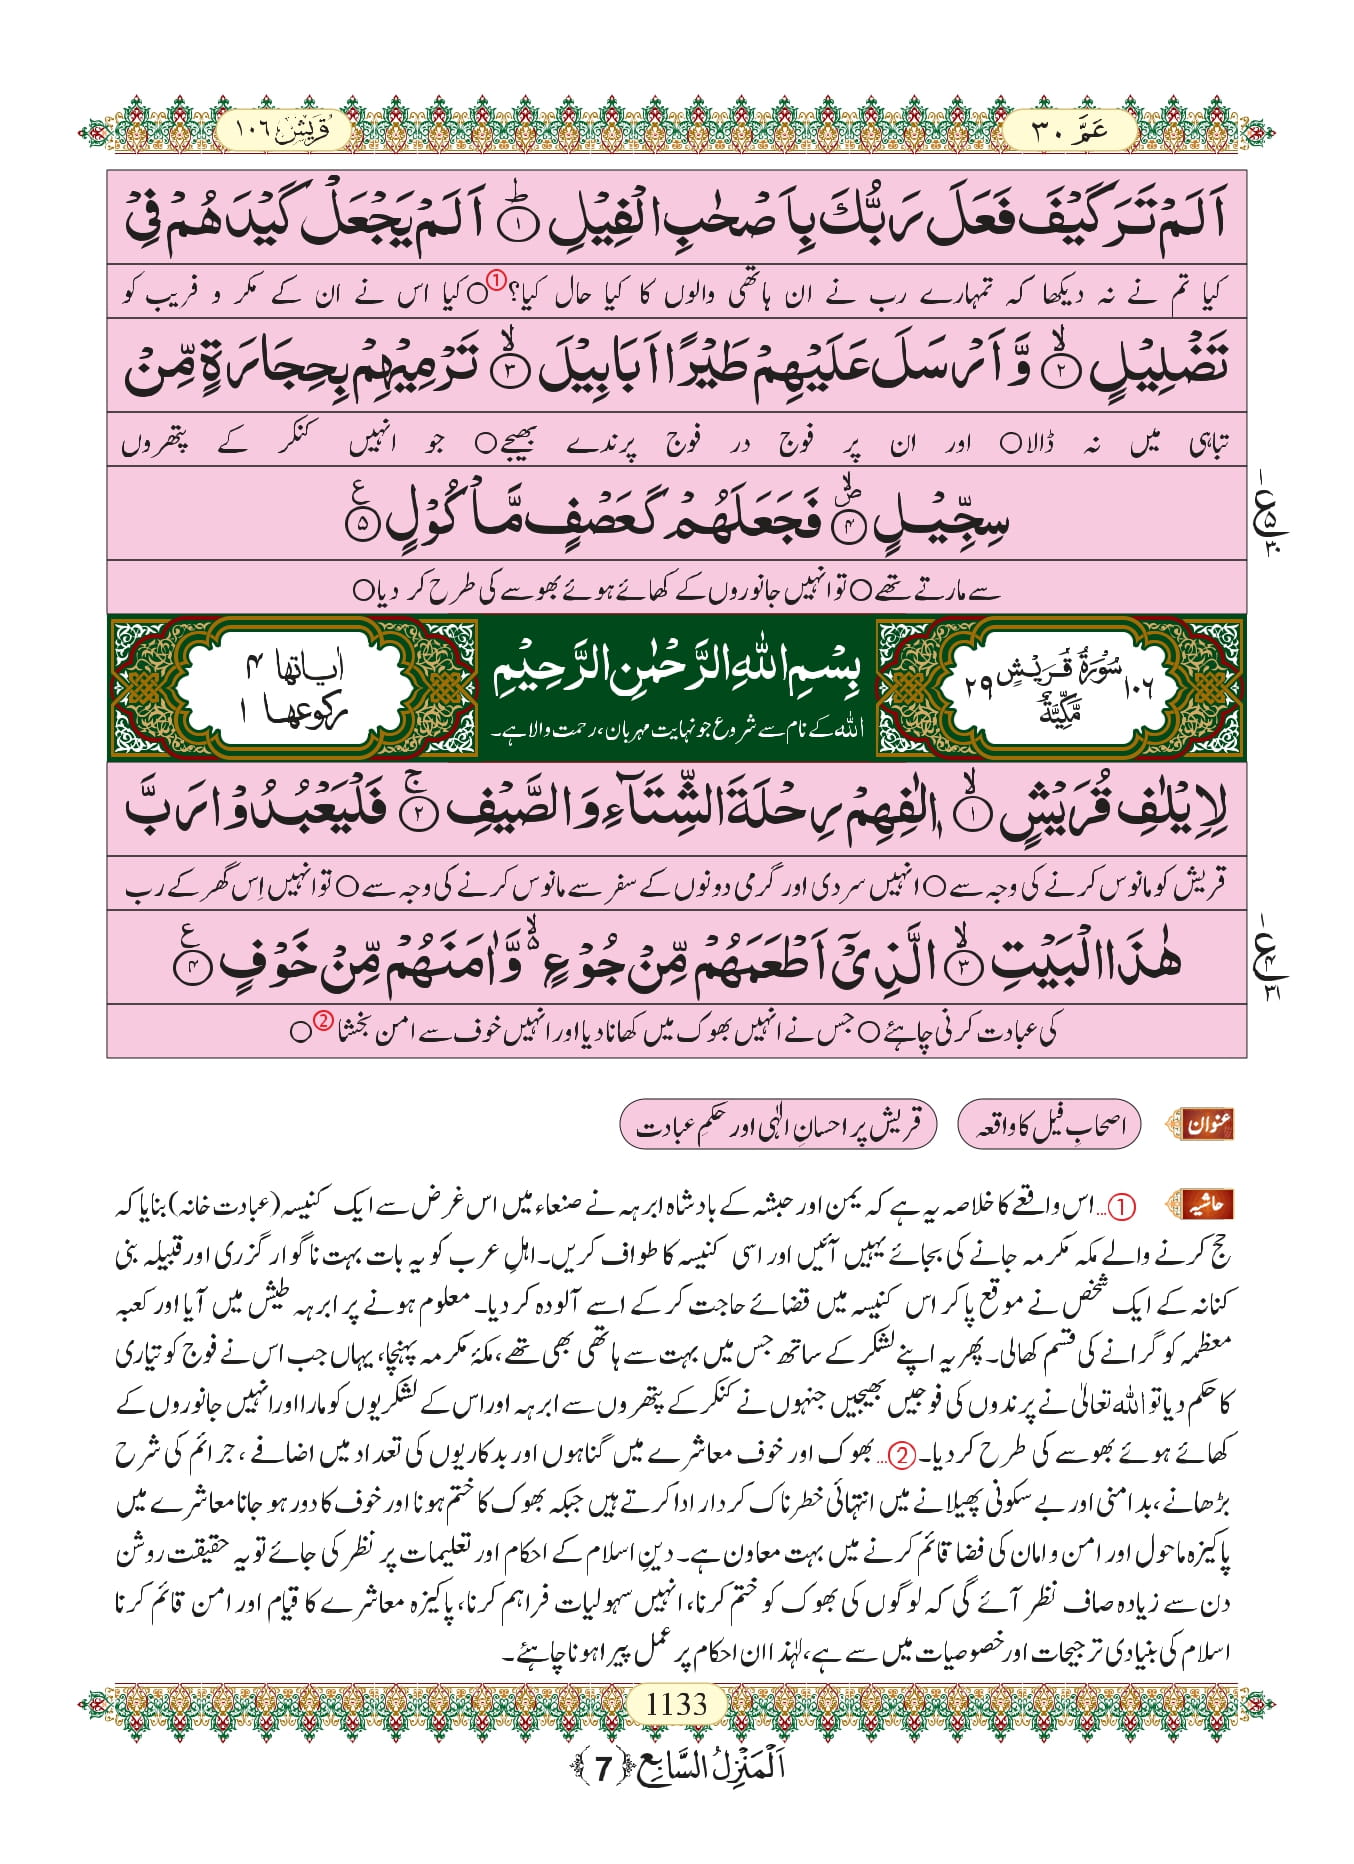 عَمَّ ۳۰
قُرَيْش ۱۰۶
اَلَمْ تَرَ كَیْفَ فَعَلَ رَبُّكَ بِاَصْحٰبِ الْفِیْلِؕ۝۱ اَلَمْ یَجْعَلْ كَیْدَهُمْ فِیْ
کیا تم نے نہ دیکھا کہ تمہارے رب نے ان ہاتھی والوں کا کیا حال کیا؟①○کیا اس نے ان کے مکر و فریب کو
تَضْلِیْلٍۙ۝۲ وَّ اَرْسَلَ عَلَیْهِمْ طَیْرًا اَبَابِیْلَۙ۝۳ تَرْمِیْهِمْ بِحِجَارَةٍ مِّنْ
تباہی میں نہ ڈالا○ اور ان پر فوج در فوج پرندے بھیجے○ جو انہیں کنکر کے پتھروں
سِجِّیْلٍﭪۙ۝۴ فَجَعَلَهُمْ كَعَصْفٍ مَّاْكُوْلٍ۠۝۵
ع ۱ ۵ ۳۰
سے مارتے تھے○ تو انہیں جانوروں کے کھائے ہوئے بھوسے کی طرح کر دیا○
۱۰۶ سُوْرَةُ قُرَیْشٍ مَّكِّیَّةٌ ۲۹
بِسْمِ اللّٰهِ الرَّحْمٰنِ الرَّحِیْمِ
اللہ کے نام سے شروع جو نہایت مہربان، رحمت والا ہے۔
اٰیاتها ۴
ركوعها ۱
لِاِیْلٰفِ قُرَیْشٍۙ۝۱ اٖلٰفِهِمْ رِحْلَةَ الشِّتَآءِ وَ الصَّیْفِۚ۝۲ فَلْیَعْبُدُوْا رَبَّ
قریش کو مانوس کرنے کی وجہ سے○ انہیں سردی اور گرمی دونوں کے سفر سے مانوس کرنے کی وجہ سے○ تو انہیں اِس گھر کے رب
هٰذَا الْبَیْتِۙ۝۳ الَّذِیْۤ اَطْعَمَهُمْ مِّنْ جُوْعٍ ﳔ وَّ اٰمَنَهُمْ مِّنْ خَوْفٍ۠۝۴
ع ۱ ۴ ۳۱
کی عبادت کرنی چاہئے○ جس نے انہیں بھوک میں کھانا دیا اور انہیں خوف سے امن بخشا②○
عنوان
اصحابِ فیل کا واقعہ
قریش پر احسانِ الٰہی اور حکمِ عبادت
حاشیہ
①... اس واقعے کا خلاصہ یہ ہے کہ یمن اور حبشہ کے بادشاہ ابرہہ نے صنعاء میں اس غرض سے ایک کنیسہ (عبادت خانہ) بنایا کہ
حج کرنے والے مکہ مکرمہ جانے کی بجائے یہیں آئیں اور اسی کنیسہ کا طواف کریں۔ اہلِ عرب کو یہ بات بہت ناگوار گزری اور قبیلہ بنی
کنانہ کے ایک شخص نے موقع پا کر اس کنیسہ میں قضائے حاجت کر کے اسے آلودہ کر دیا۔ معلوم ہونے پر ابرہہ طیش میں آیا اور کعبہ
معظمہ کو گرانے کی قسم کھالی۔ پھر یہ اپنے لشکر کے ساتھ جس میں بہت سے ہاتھی بھی تھے، مکۂ مکرمہ پہنچا، یہاں جب اس نے فوج کو تیاری
کا حکم دیا تو اللہ تعالیٰ نے پرندوں کی فوجیں بھیجیں جنہوں نے کنکر کے پتھروں سے ابرہہ اور اس کے لشکریوں کو مارا اور انہیں جانوروں کے
کھائے ہوئے بھوسے کی طرح کر دیا۔ ②... بھوک اور خوف معاشرے میں گناہوں اور بدکاریوں کی تعداد میں اضافے، جرائم کی شرح
بڑھانے، بدامنی اور بے سکونی پھیلانے میں انتہائی خطرناک کردار ادا کرتے ہیں جبکہ بھوک کا ختم ہونا اور خوف کا دور ہو جانا معاشرے میں
پاکیزہ ماحول اور امن و امان کی فضا قائم کرنے میں بہت معاون ہے۔ دینِ اسلام کے احکام اور تعلیمات پر نظر کی جائے تو یہ حقیقت روشن
دن سے زیادہ صاف نظر آئے گی کہ لوگوں کی بھوک کو ختم کرنا، انہیں سہولیات فراہم کرنا، پاکیزہ معاشرے کا قیام اور امن قائم کرنا
اسلام کی بنیادی ترجیحات اور خصوصیات میں سے ہے، لہٰذا ان احکام پر عمل پیرا ہونا چاہئے۔
1133
اَلْمَنْزِلُ السَّابِع ﴿7﴾